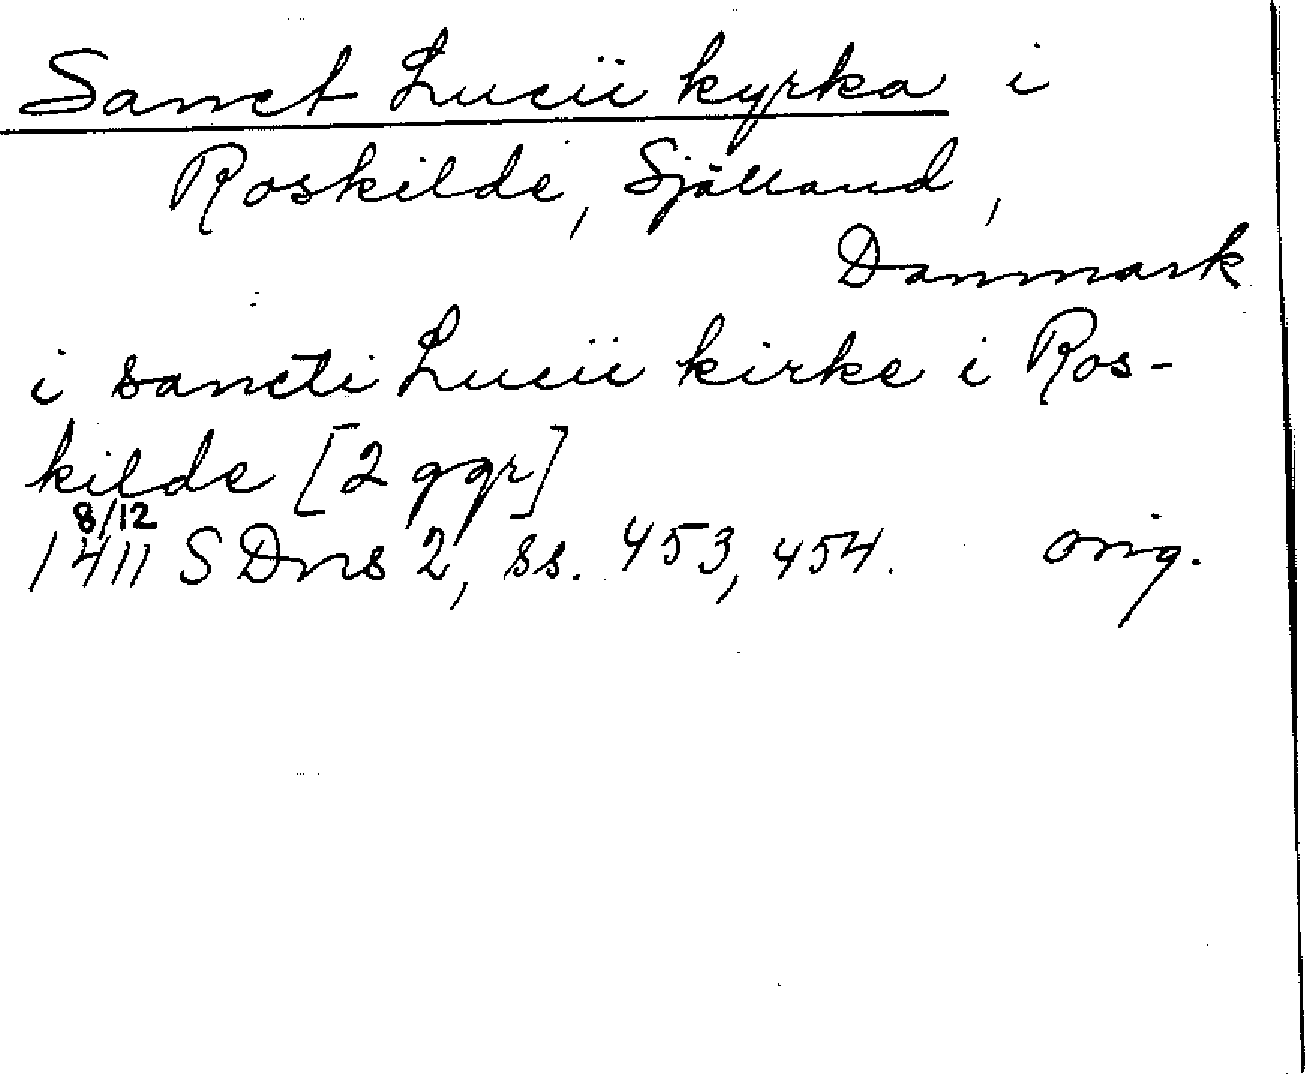 Sanct Lucii kyrka i
Roskilde, Själland,
Danmark
i sancti Lucii kirke i Ros-
kilde [2 ggr]
8/12
1411 SDns 2, ss. 453, 454. orig.